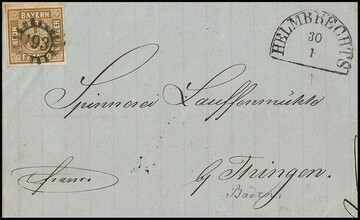 BAYERN
FRANCO
HELMBRECHTS
30
1
Spinnerei Lauffenmühle
franco.
by Thringen.
Baden.